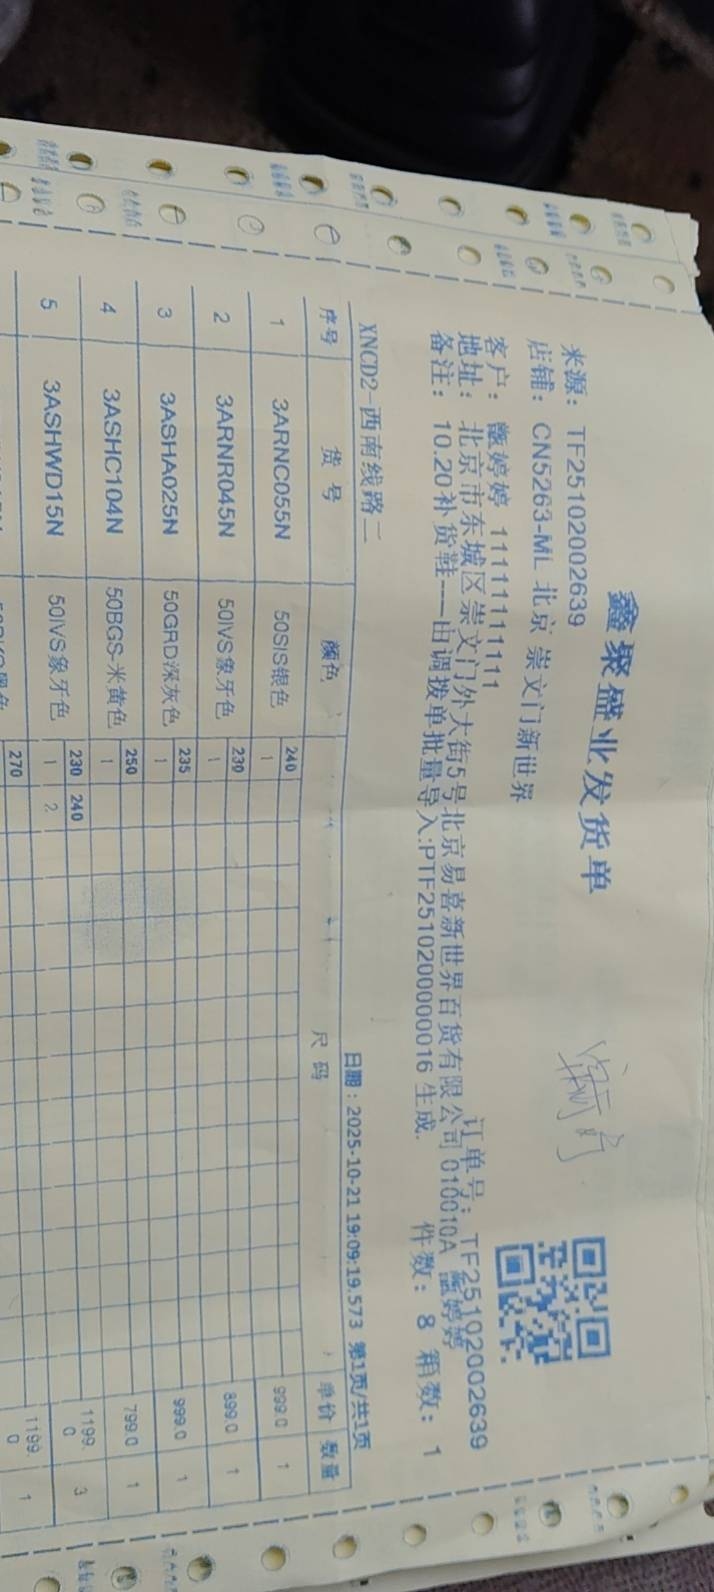 鑫聚盛业发货单
来源：TF25102002639
店铺：CN5263-ML 北京 崇文门新世界
订单号：TF25102002639
客户：甑婷婷 11111111111
地址：北京市东城区崇文门外大街5号北京易喜新世界百货有限公司 010010A 甑婷婷
备注：10.20补货鞋---由调拨单批量导入:PTF251020000016 生成.
件数：8 箱数：1
XNCD2-西南线路二
日期：2025-10-21 19:09:19.573 第1页/共1页
序号 货号 颜色 尺码 单价 数量
1 3ARNC055N 50SIS银色 240 999.0 1
1
2 3ARNR045N 50IVS象牙色 230 899.0 1
1
3 3ASHA025N 50GRD深灰色 235 999.0 1
1
4 3ASHC104N 50BGS-米黄色 250 799.0 1
1
5 3ASHWD15N 50IVS象牙色 230 240 1199.0 3
1 2
270 1199.0 1